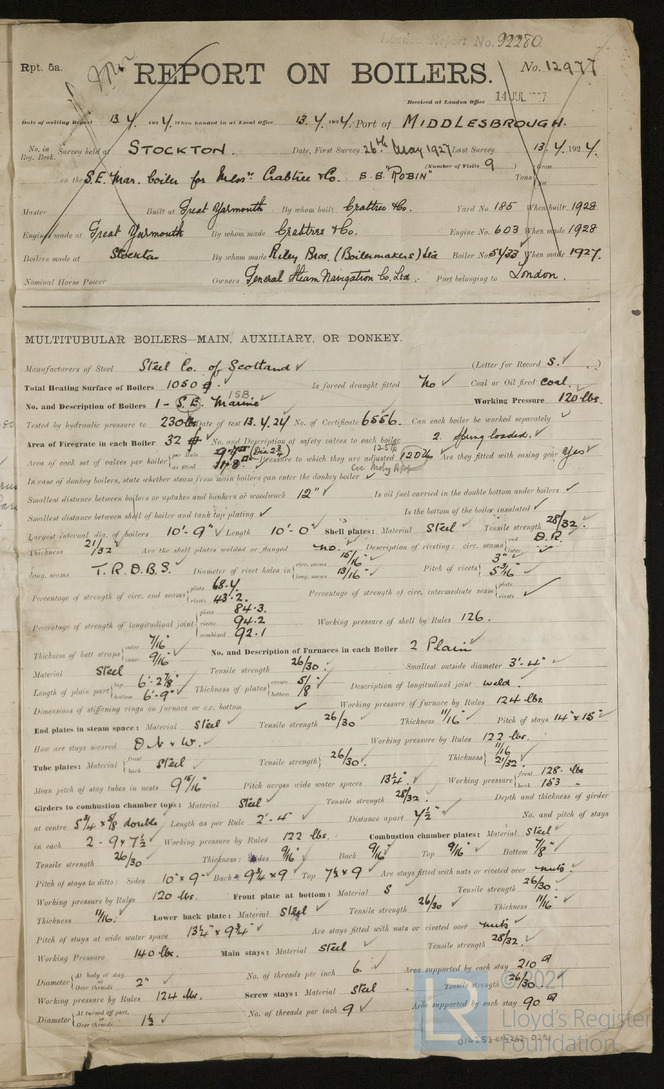 London Report No. 92280
Rpt. 5a.
REPORT ON BOILERS.
No. 12977
Received at London Office 14 JUL
Date of writing Report 13. 4. 1924. When handed in at Local Office 13. 4. 1924. Port of MIDDLESBROUGH.
No. in Reg. Book. Survey held at STOCKTON. Date, First Survey 26th May 1927 Last Survey 13. 4. 1924.
(Number of Visits 9 ) Gross
on the S.E. Mar. boiler for Messrs Crabtree & Co. S.S. "ROBIN" Tons
Master Built at Great Yarmouth By whom built Crabtree & Co. Yard No. 185 When built 1928
Engines made at Great Yarmouth By whom made Crabtree & Co. Engine No. 603 When made 1928
Boilers made at Stockton By whom made Riley Bros. (Boilermakers) Ltd Boiler No. 5433 When made 1927.
Nominal Horse Power Owners General Steam Navigation Co. Ltd. Port belonging to London.
MULTITUBULAR BOILERS—MAIN, AUXILIARY, OR DONKEY.
Manufacturers of Steel Steel Co. of Scotland (Letter for Record S. )
Total Heating Surface of Boilers 1050 Is forced draught fitted No Coal or Oil fired Coal.
No. and Description of Boilers 1 - S.E. Marine 1SB. Working Pressure 120 lbs.
Tested by hydraulic pressure to 230 lbs Date of test 13. 4. 24 No. of Certificate 6556. Can each boiler be worked separately
Area of Firegrate in each Boiler 32 No. and Description of safety valves to each boiler 2. Spring loaded.
Area of each set of valves per boiler per Rule as fitted Pressure to which they are adjusted Are they fitted with easing gear Yes
In case of donkey boilers, state whether steam from main boilers can enter the donkey boiler
Smallest distance between boilers or uptakes and bunkers or woodwork 12" Is oil fuel carried in the double bottom under boilers
Smallest distance between shell of boiler and tank top plating Is the bottom of the boiler insulated
Largest internal dia. of boilers 10'-9" Length 10'-0" Shell plates: Material Steel Tensile strength 28/32.
Thickness 21/32" Are the shell plates welded or flanged no. Description of riveting: circ. seams end D.R. inter.
long. seams T.R.D.B.S. Diameter of rivet holes in circ. seams 15/16" long. seams 13/16" Pitch of rivets 3" 5 3/16"
Percentage of strength of circ. end seams plate 68.4 rivets 43.2. Percentage of strength of circ. intermediate seam plate rivets
Percentage of strength of longitudinal joint plate 84.3. rivets 94.2 combined 92.1 Working pressure of shell by Rules 126.
Thickness of butt straps outer 7/16" inner 9/16" No. and Description of Furnaces in each Boiler 2 Plain
Material Steel Tensile strength 26/30 Smallest outside diameter 3'-4"
Length of plain part top 6'-2 7/8" bottom 6'-9" Thickness of plates crown bottom 5/8" Description of longitudinal joint weld.
Dimensions of stiffening rings on furnace or c.c. bottom Working pressure of furnace by Rules 124 lbs.
End plates in steam space: Material Steel Tensile strength 26/30 Thickness 11/16" Pitch of stays 14" x 15"
How are stays secured D.N & W. Working pressure by Rules 122 lbs.
Tube plates: Material front back Steel Tensile strength 26/30. Thickness 11/16 21/32"
Mean pitch of stay tubes in nests 9 15/16" Pitch across wide water spaces 13 1/4" Working pressure front 128. lbs back 153 "
Girders to combustion chamber tops: Material Steel Tensile strength 28/32. Depth and thickness of girder
at centre 5 3/4 x 5/8 double Length as per Rule 2'-4" Distance apart 7 1/2" No. and pitch of stays
in each 2 - 9 x 7 1/2 Working pressure by Rules 122 lbs. Combustion chamber plates: Material Steel
Tensile strength 26/30 Thickness: Sides 9/16" Back 9/16" Top 9/16" Bottom 7/8"
Pitch of stays to ditto: Sides 10" x 9" Back 9 3/4 x 9 Top 7 1/2 x 9 Are stays fitted with nuts or riveted over nuts.
Working pressure by Rules 120 lbs. Front plate at bottom: Material S Tensile strength 26/30.
Thickness 11/16". Lower back plate: Material Steel Tensile strength 26/30 Thickness 11/16"
Pitch of stays at wide water space 13 1/4" x 9 3/4" Are stays fitted with nuts or riveted over nuts
Working Pressure 140 lbs. Main stays: Material Steel Tensile strength 28/32.
Diameter At body of stay, or Over threads 2" No. of threads per inch 6. Area supported by each stay 210
Working pressure by Rules 124 lbs. Screw stays: Material Steel Tensile strength 26/30
Diameter At turned off part, or Over threads 1 1/2 No. of threads per inch 9 Area supported by each stay 90
© 2021
Lloyd's Register
Foundation